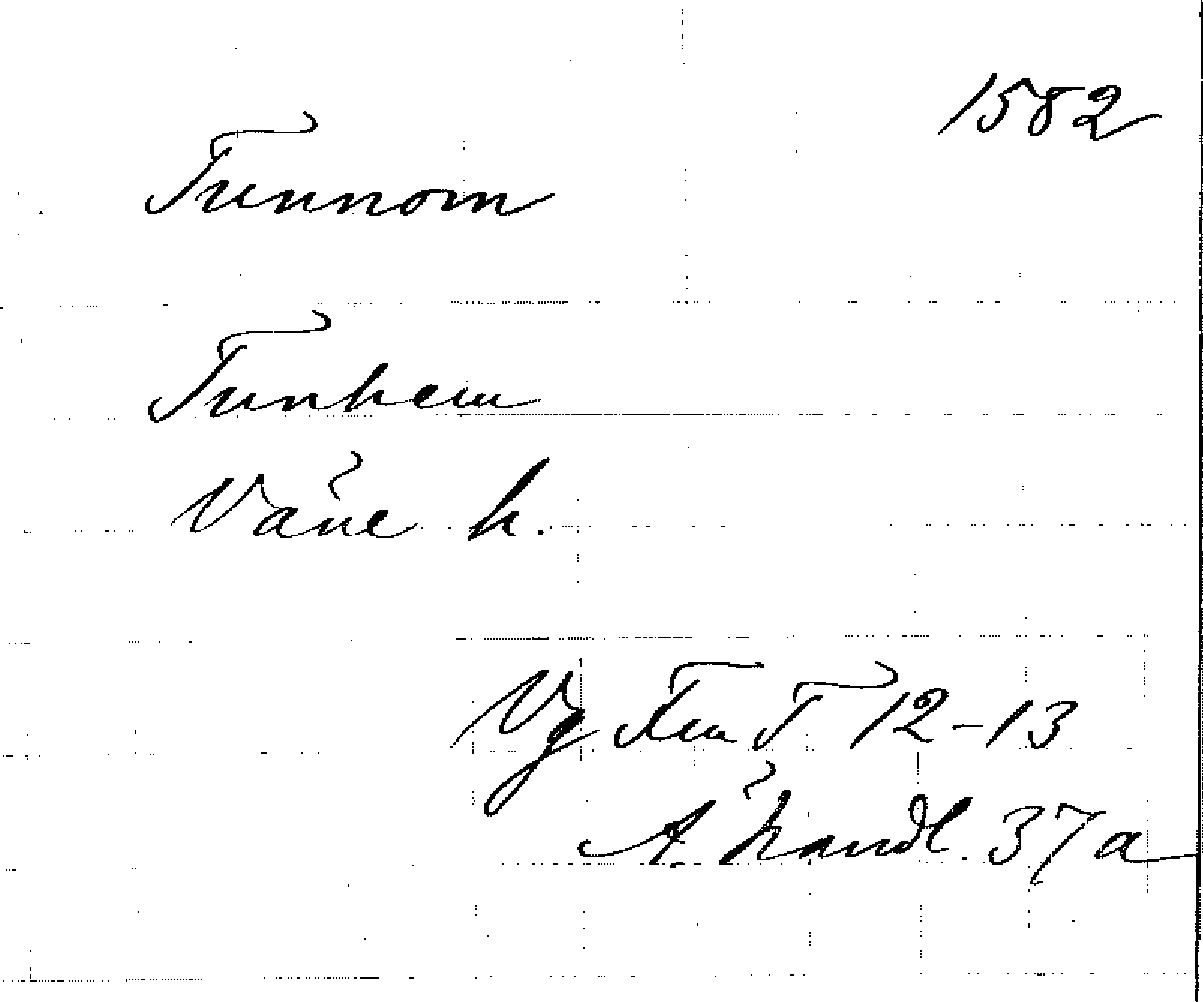 1582
Tunnom
Tunhem
Väne h.
Vg Tun T 12-13
Ä handl. 37a